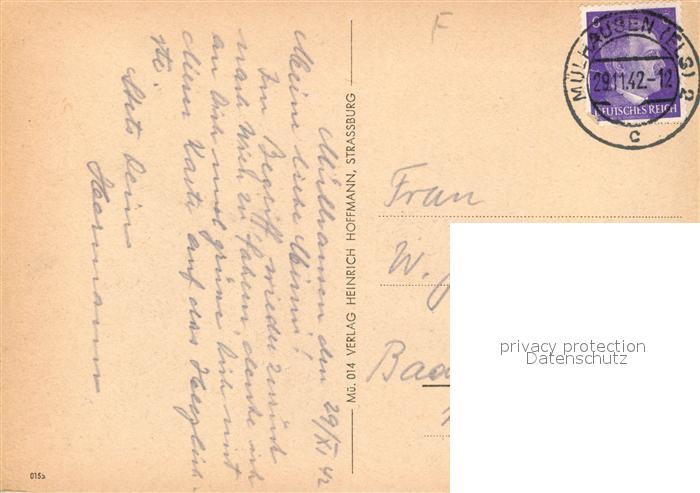 Mülhausen den 29/XI 42
Meine liebe Mimi!
Im Begriff wieder zurück
nach Wien zu fahren, denke ich
an Dich und grüsse Dich mit
dieser Karte auf das Herzlich-
ste
Stets Dein
Hermann
Mü. 014 VERLAG HEINRICH HOFFMANN, STRASSBURG
F
6
MÜLHAUSEN (ELS) 2
29.11.42.-12
c
DEUTSCHES REICH
Frau
W.
Bad
privacy protection
Datenschutz